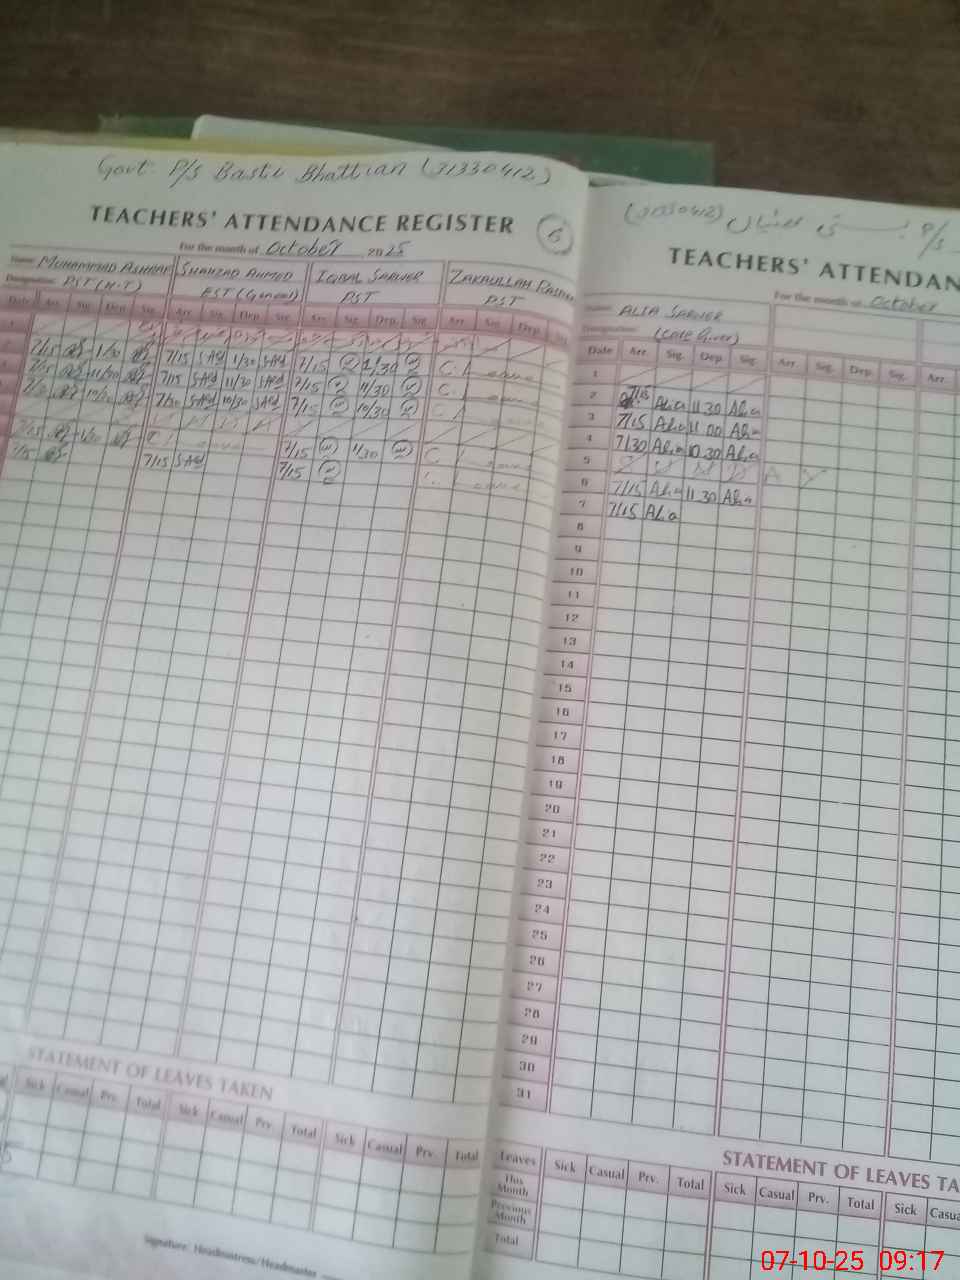 Govt: P/S Basti Bhattian (31330412)
TEACHERS' ATTENDANCE REGISTER
6
For the month of October 2025
Name MUHAMMAD ASHRAF SHAHZAD AHMED IQBAL SARWER ZAKAULLAH
Designation PST (H-T) EST (General) PST PST
Date Arr. Sig. Dep. Sig. Arr. Sig. Dep. Sig. Arr. Sig. Dep. Sig. Arr. Sig. Dep. Sig.
7/15 11/30 7/15 SAd 1/30 SAd 7/15 1/30 C. Leave
7/15 11/30 7/15 SAd 11/30 SAd 7/15 11/30 C. Leave
7/30 10/30 7/30 SAd 10/30 SAd 7/15 10/30 C. Leave
7/15 1/30 C Leave 7/15 11/30 C. Leave
7/15 7/15 SAd 7/15 C. Leave
STATEMENT OF LEAVES TAKEN
Sick Casual Prv. Total Sick Casual Prv. Total Sick Casual Prv. Total
Signature Headmistress/Headmaster
P/S بستی بھٹیاں (31330412)
TEACHERS' ATTENDAN
For the month of October
Name ALIA SARWER
Designation (Care Giver)
Date Arr. Sig. Dep. Sig. Arr. Sig. Dep. Sig. Arr.
1
2 7/15 Alia 11.30 Alia
3 7/15 Alia 11.00 Alia
4 7/30 Alia 10.30 Alia
5 S U N D A Y
6 7/15 Alia 11.30 Alia
7 7/15 Alia
8
9
10
11
12
13
14
15
16
17
18
19
20
21
22
23
24
25
26
27
28
29
30
31
STATEMENT OF LEAVES TA
Leaves Sick Casual Prv. Total Sick Casual Prv. Total Sick Casua
This Month
Previous Month
Total
07-10-25 09:17